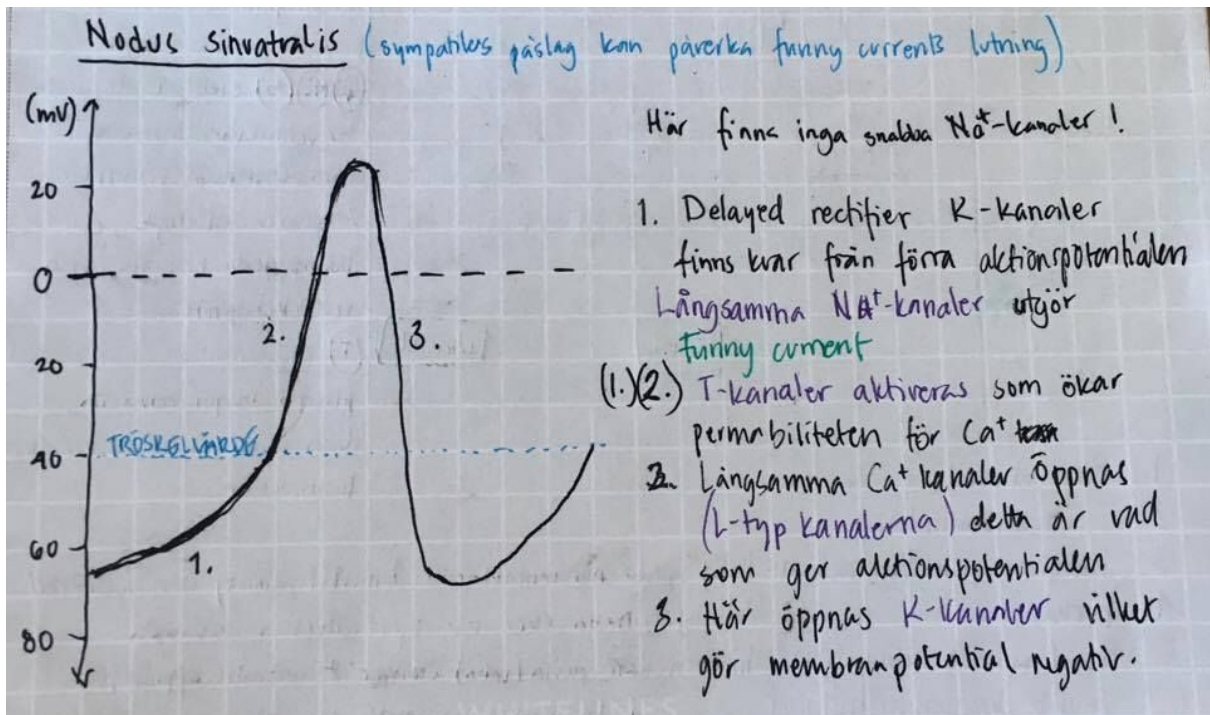 Nodus sinuatralis (sympatikus påslag kan påverka funny currents lutning)
(mV)
Här finns inga snabba Na⁺-kanaler !
20
1. Delayed rectifier K-kanaler
finns kvar från förra aktionspotentialen
0
Långsamma Na⁺-kanaler utgör
2.
3.
Funny current
20
(1.)(2.) T-kanaler aktiveras som ökar
permabiliteten för Ca⁺
TRÖSKELVÄRDE
40
2. Långsamma Ca⁺ kanaler öppnas
(L-typ kanalerna) detta är vad
60
1.
som ger aktionspotentialen
3. Här öppnas K-kanaler vilket
80
gör membranpotential negativ.